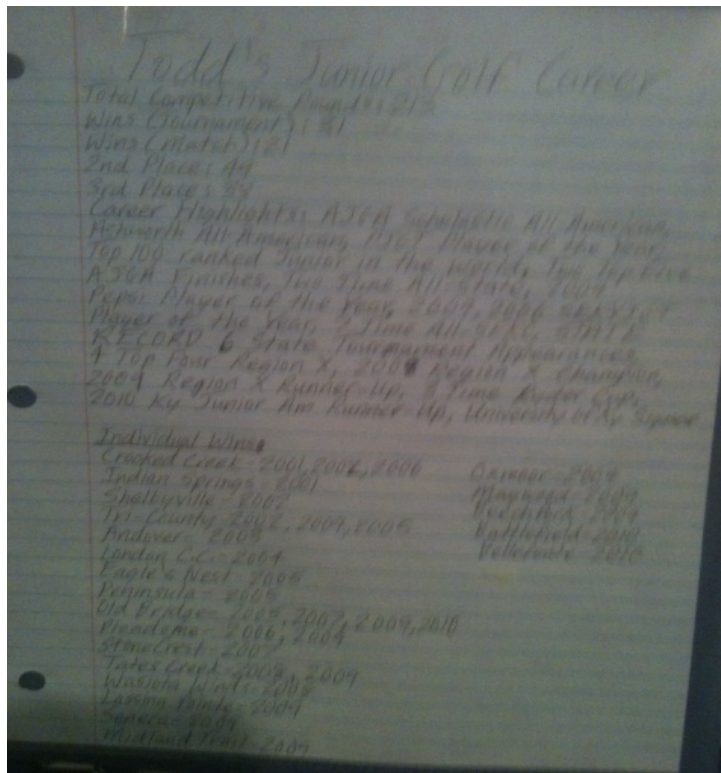 Todd's Junior Golf Career
Total Competitive Rounds: 213
Wins (Tournament): 31
Wins (Match): 21
2nd Place: 44
3rd Place: 38
Career Highlights: AJGA Scholastic All-American,
Ashworth All-American, PJGT Player of the Year,
Top 100 ranked Junior in the World, Two Top Five
AJGA Finishes, Two Time All-State, 2009
Pepsi Player of the Year, 2009, 2006
Player of the Year, Time All- STATE
RECORD 6 State Tournament Appearances,
4 Top Four Region X, Region X Champion,
2009 Region X Runner-Up, Time Ryder Cup,
2010 Ky Junior Am Runner-Up, University of Ky. Signee
Individual Wins:
Crooked Creek- 2001, 2002, 2006
Indian Springs- 2001
Shelbyville- 2002
Tri-County- 2002, 2004, 2005
Andover- 2003
London C.C.- 2004
Eagle's Nest- 2005
Peninsula- 2005
Old Bridge- 2005, 2007, 2009, 2010
Picadome- 2006, 2009
StoneCrest- 2007
Tates Creek- 2008, 2009
Wasioto Winds- 2008
Lassing Pointe- 2009
Seneca- 2009
Midland Trail- 2009
Oxmoor- 2009
Maywood- 2009
2009
Battlefield- 2010
Bellefonte- 2010